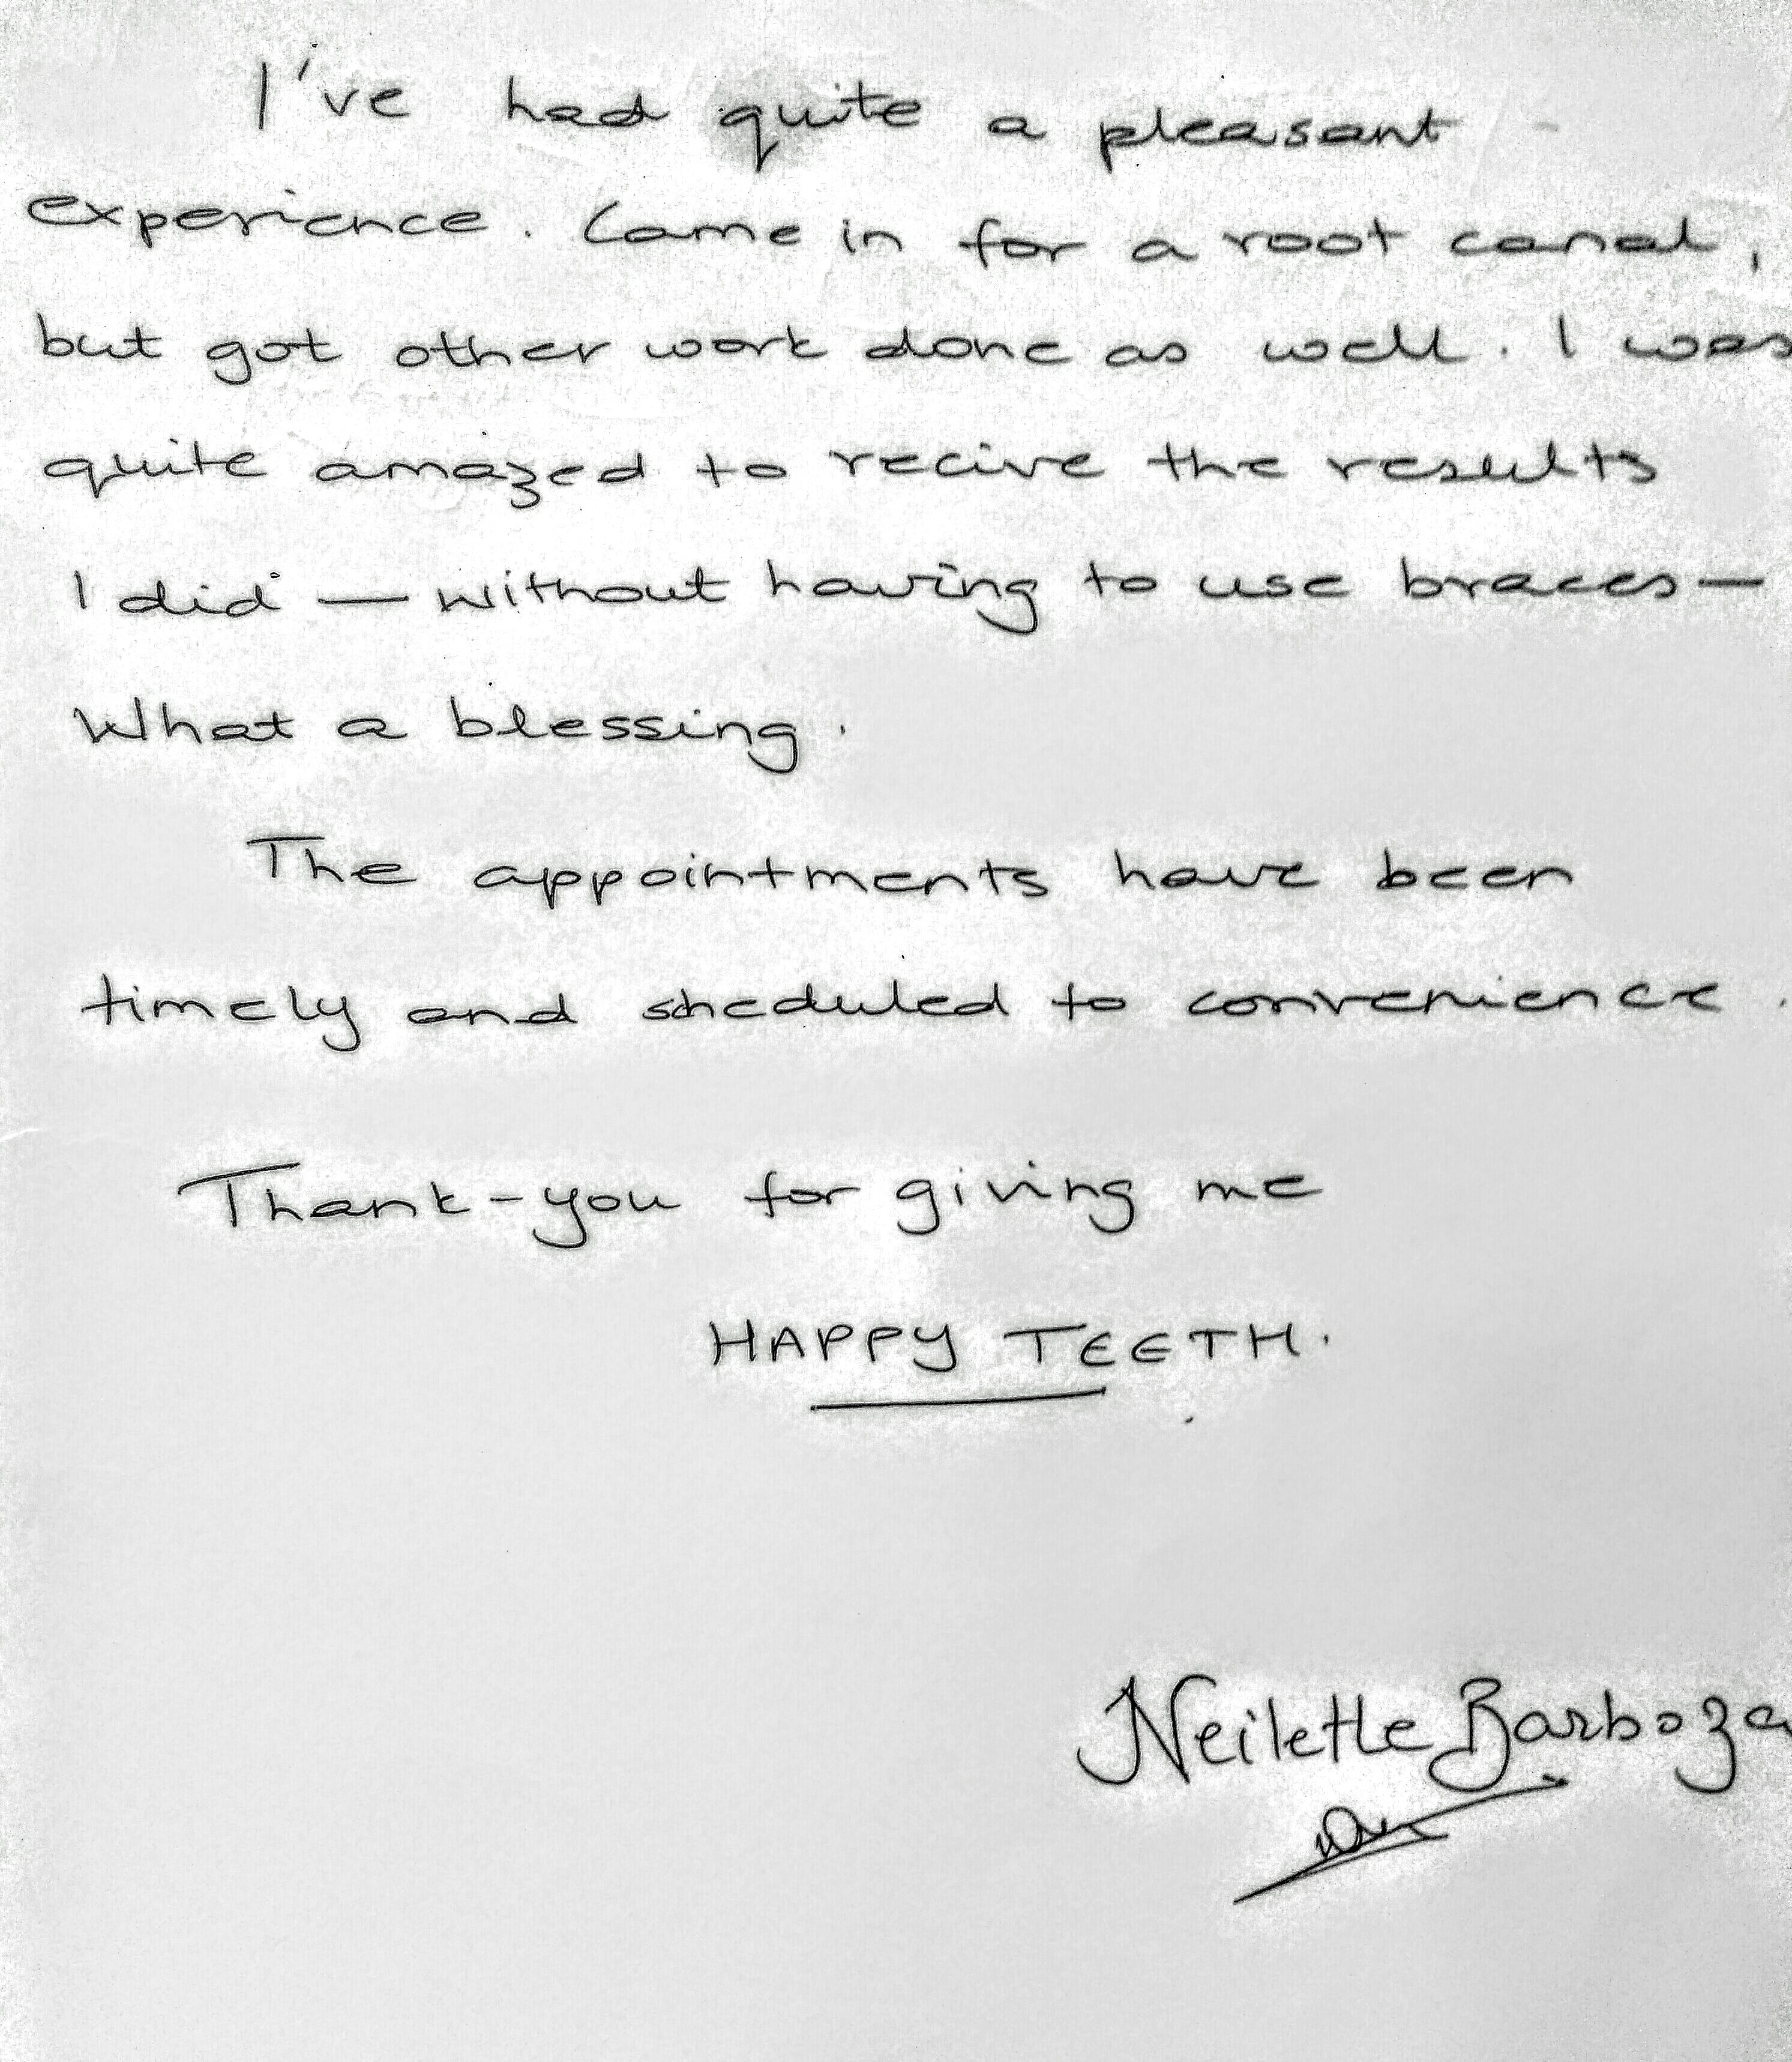 I've had quite a pleasant
experience. Came in for a root canal,
but got other work done as well. I was
quite amazed to recive the results
I did — without having to use braces —
What a blessing.
The appointments have been
timely and sheduled to convenience.
Thank-you for giving me
HAPPY TEETH.
Neilette Barboza